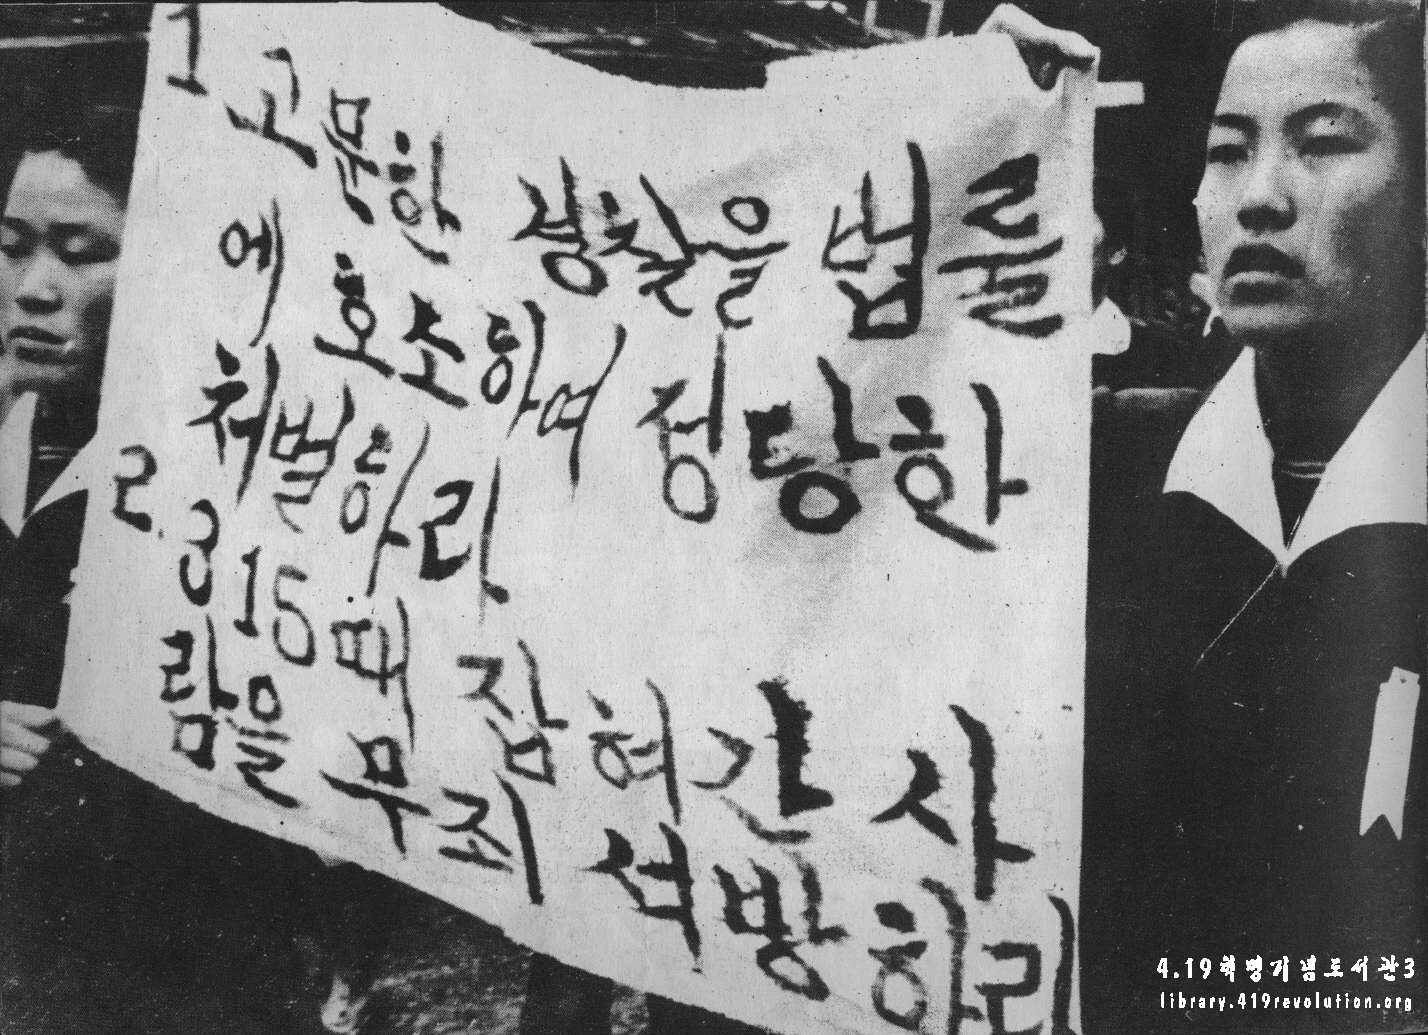 1 고문한 경찰을 법률
에 호소하여 정당한
처벌하라
2. 3 15때 잡혀간 사
람을 무죄 석방하라
4.19혁명기념도서관3
library.419revolution.org